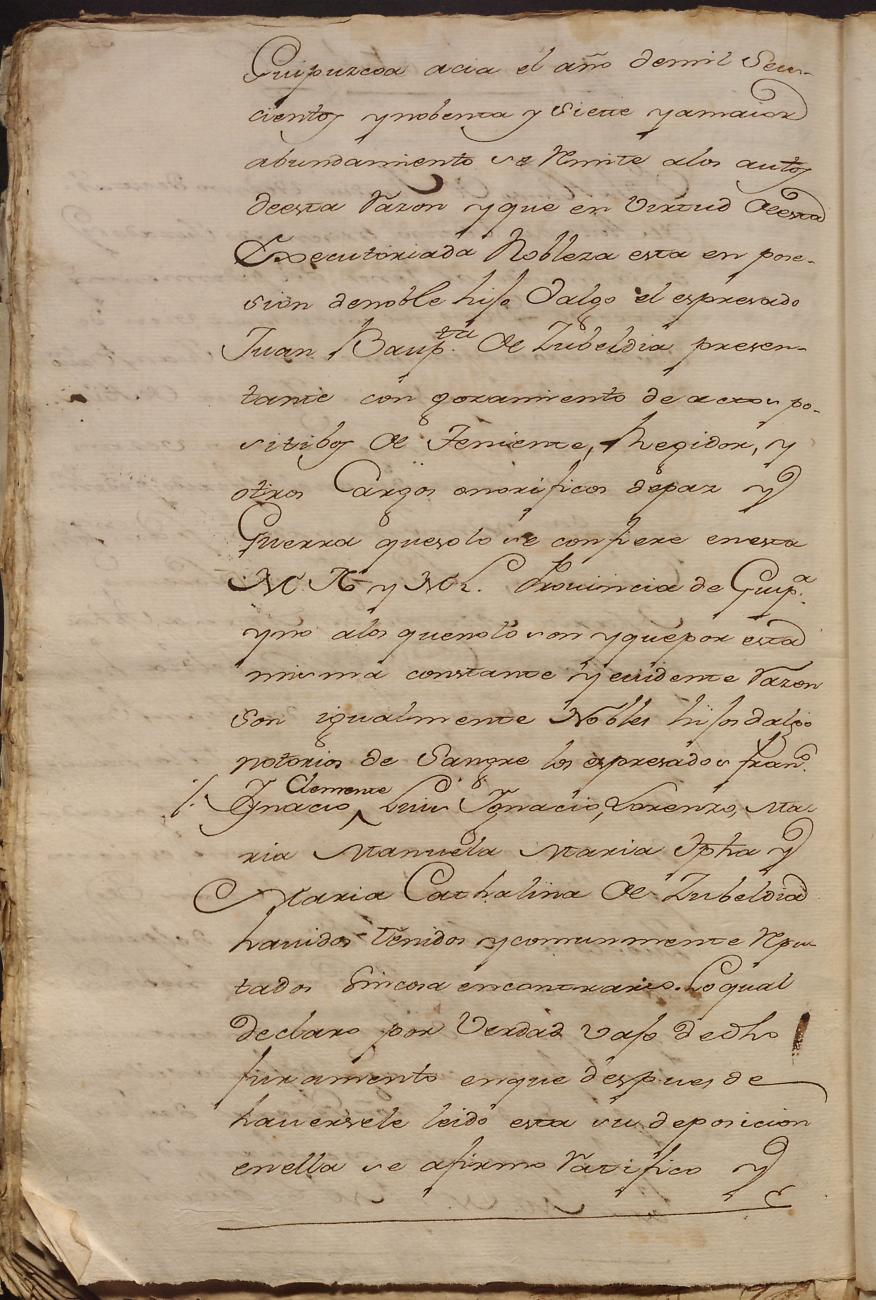 Guipuzcoa acia el año demil Seis-
cientos ynobenta y Siete yamaior
abundamento se Remite alos autos
deesta Razon yque en Virtud deesta
Executoriada Nobleza esta en pose-
sion denoble hijo dalgo el espresado
Juan Baup.ta de Zubeldia presen-
tante con gozamiento de actos po-
sitibos de Teniente, Regidor, y
otros Cargos onorificos depaz y
Guerra quesolo se confiere enesta
M. N. y M. L. Prouincia de Guip.a
yno alos quenolo son yquepor esta
misma constante yeuidente Razon
Son igualmente Nobles hijosdalgo
notorios de Sangre los espresados fran.co
Clemente
/. Ygnacio, ^ Luis Ygnacio, Lorenzo, Ma-
ria Manuela Maria Jpha y
Maria Cathalina de Zubeldia
hauidos tenidos ycomunmente Repu-
tados Sincosa encontrario. Lo qual
declaro por Verdad vajo de dho
juramento enque despues de
hauersele leido esta su deposicion
enella se afirmo Ratifico y